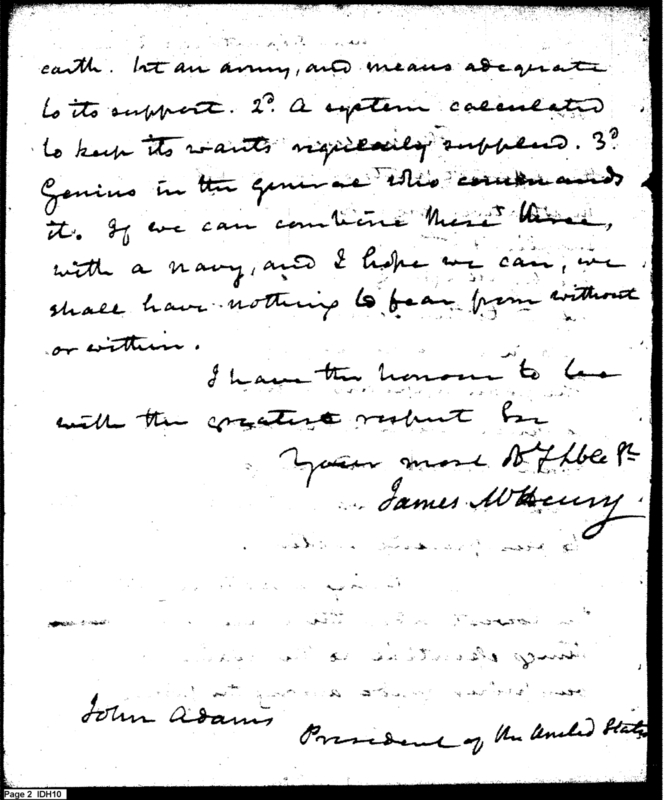 earth. 1st an army, and means adequate
to its support. 2d. A system calculated
to keep its wants regularly supplied. 3d
Genius in the general who commands
it. If we can combine these three,
with a navy, and I hope we can, we
shall have nothing to fear from without
or within.
I have the honour to be
with the greatest respect Sir
Your most Ob St
James McHenry
John Adams
President of the United States
Page 2 IDH10